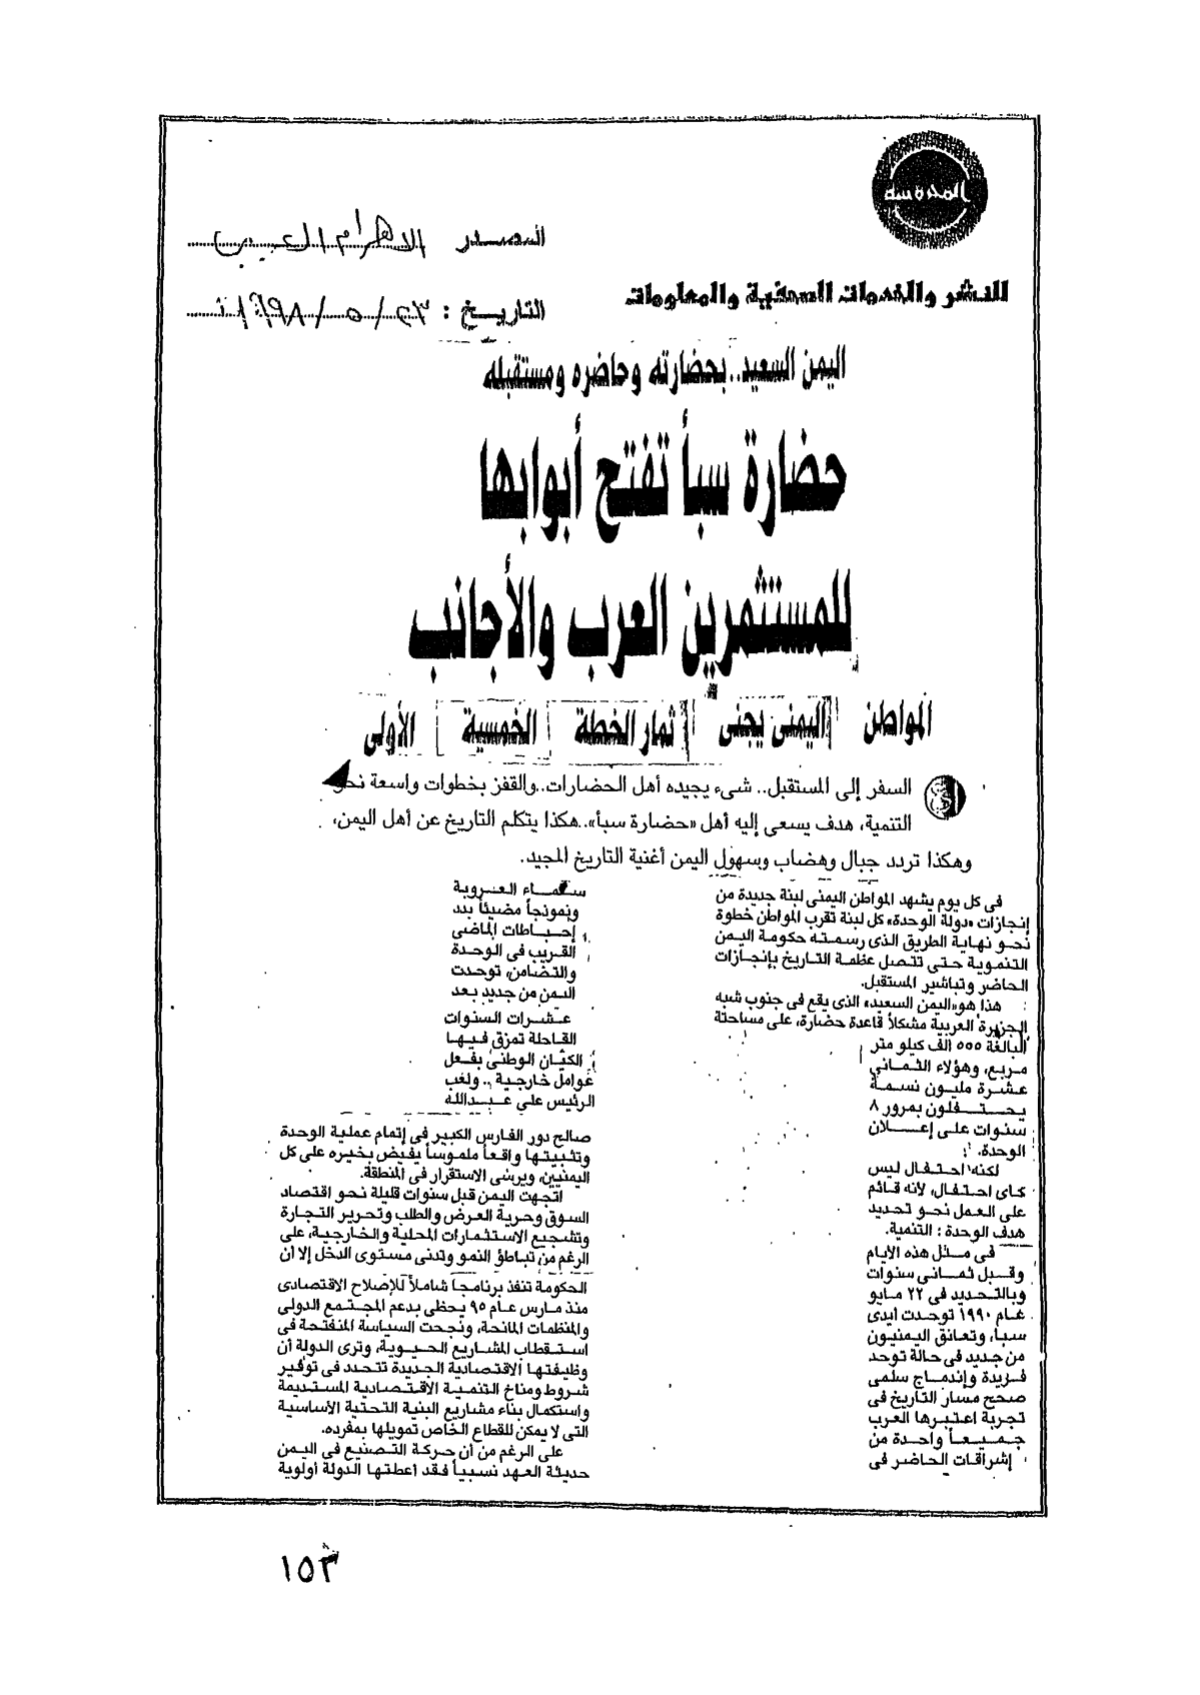 المدرسة
المصدر الاهرام العربى
النشر والخدمات الصحفية والمعلومات
التاريخ : ٢٣ / ٥ / ١٩٩٨
اليمن السعيد.. بحضارته وحاضره ومستقبله
حضارة سبأ تفتح أبوابها
للمستثمرين العرب والأجانب
المواطن اليمنى يجنى ثمار الخطة الخمسية الأولى
السفر إلى المستقبل.. شىء يجيده أهل الحضارات..والقفز بخطوات واسعة نحو
التنمية، هدف يسعى إليه أهل «حضارة سبأ»..هكذا يتكلم التاريخ عن أهل اليمن،
وهكذا تردد جبال وهضاب وسهول اليمن أغنية التاريخ المجيد.
فى كل يوم يشهد المواطن اليمنى لبنة جديدة من
إنجازات «دولة الوحدة» كل لبنة تقرب المواطن خطوة
نحو نهاية الطريق الذى رسمته حكومة اليمن
التنموية حتى تتصل عظمة التاريخ بإنجازات
الحاضر وتباشير المستقبل.
هذا هو«اليمن السعيد» الذى يقع فى جنوب شبه
الجزيرة العربية مشكلاً قاعدة حضارة، على مساحتة
البالغة ٥٥٥ الف كيلو متر
مربع، وهؤلاء الثمانى
عشرة مليون نسمة
يحتفلون بمرور ٨
سنوات على إعلان
الوحدة.
لكنه احتفال ليس
كاى احتفال، لأنه قائم
على العمل نحو تحديد
هدف الوحدة : التنمية.
فى مثل هذه الأيام
وقبل ثمانى سنوات
وبالتحديد فى ٢٢ مايو
عام ١٩٩٠ توحدت أيدى
سبأ، وتعانق اليمنيون
من جديد فى حالة توحد
فريدة وإندماج سلمى
صحح مسار التاريخ فى
تجربة اعتبرها العرب
جميعاً واحدة من
إشراقات الحاضر فى
سماء العروبة
ونموذجاً مضيئاً بدد
إحباطات الماضى
القريب فى الوحدة
والتضامن، توحدت
اليمن من جديد بعد
عشرات السنوات
القاحلة تمزق فيها
الكيان الوطنى بفعل
عوامل خارجية .. ولعب
الرئيس على عبدالله
صالح دور الفارس الكبير فى إتمام عملية الوحدة
وتثبيتها واقعاً ملموساً يفيض بخيره على كل
اليمنيين، ويرسى الاستقرار فى المنطقة.
اتجهت اليمن قبل سنوات قليلة نحو اقتصاد
السوق وحرية العرض والطلب وتحرير التجارة
وتشجيع الاستثمارات المحلية والخارجية، على
الرغم من تباطؤ النمو وتدنى مستوى الدخل إلا أن
الحكومة تنفذ برنامجاً شاملاً للإصلاح الاقتصادى
منذ مارس عام ٩٥ يحظى بدعم المجتمع الدولى
والمنظمات المانحة، ونجحت السياسة المنفتحة فى
استقطاب المشاريع الحيوية، وترى الدولة أن
وظيفتها الاقتصادية الجديدة تتحدد فى توفير
شروط ومناخ التنمية الاقتصادية المستديمة
واستكمال بناء مشاريع البنية التحتية الأساسية
التى لا يمكن للقطاع الخاص تمويلها بمفرده.
على الرغم من أن حركة التصنيع فى اليمن
حديثة العهد نسبياً فقد أعطتها الدولة أولوية
١٥٣